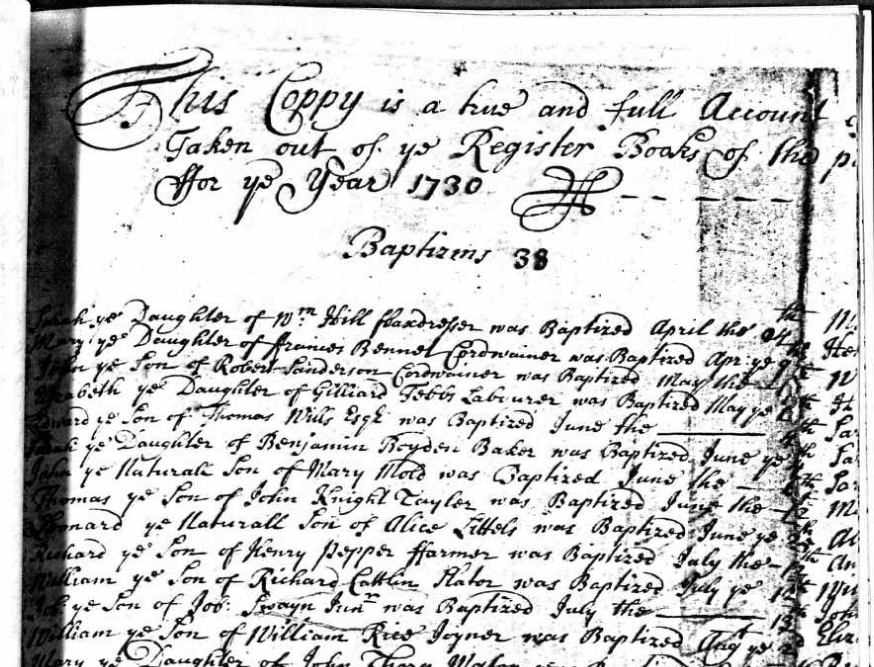 This Coppy is a true and full Account
Taken out of ye Register Books of the
ffor ye Year 1730
Baptizms 38
Sarah ye Daughter of Wm Hill fflaxdresser was Baptized April the
Mary ye Daughter of Frances Bennet Cordwainer was Baptized Apr: ye
John ye Son of Robert Sanderson Cordwainer was Baptized May the
Elizabeth ye Daughter of Gilliard Tebbs Labourer was Baptized May ye
Edward ye Son of Thomas Wills Esqr was Baptized June the
Sarah ye Daughter of Benjamin Boyden Baker was Baptized June ye
John ye Naturall Son of Mary Mold was Baptized June the
Thomas ye Son of John Knight Tayler was Baptized June the
Leonard ye Naturall Son of Alice Littels was Baptized June ye
Richard ye Son of Henry Pepper ffarmer was Baptized July the
William ye Son of Richard Cattlin Slator was Baptized July ye
Job ye Son of Job: Swayn Junr was Baptized July the
William ye Son of William Rice Joyner was Baptized Augt ye
Mary ye Daughter of John